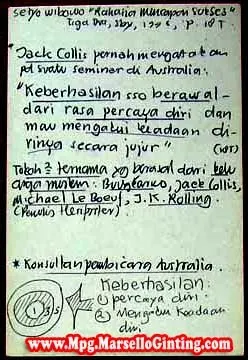 Setyo Wibowo "Rahasia Mencapai Sukses"
Tiga Dua, Sby, p. 187
"Jack Collis pernah mengatakan
pd suatu seminar di Australia:
"Keberhasilan sso berawal
dari rasa percaya diri dan
mau mengakui keadaan di-
rinya secara jujur"
Tokoh2 ternama yg berawal dari kelu
arga miskin: Jack Collis,
Michael Le Boeuf, J.K. Rolling.
(Penulis
* Konsultan pembicara Australia.
Keberhasilan:
① percaya diri
② Mengakui Keadaan
diri
www.Mpg.MarselloGinting.com